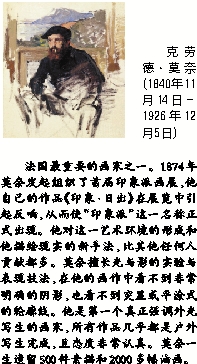 克劳
德·莫奈
(1840年11
月14日–
1926年12
月5日)
法国最重要的画家之一。1874年
莫奈发起组织了首届印象派画展,他
自己的作品《印象·日出》在展览中引
起反响,从而使“印象派”这一名称正
式出现。他对这一艺术环境的形成和
他描绘现实的新手法,比其他任何人
贡献都多。莫奈擅长光与影的实验与
表现技法,在他的画作中看不到非常
明确的阴影,也看不到突显或平涂式
的轮廓线。他是第一个真正强调外光
写生的画家,所有作品几乎都是户外
写生完成,且态度非常认真。莫奈一
生遗留500件素描和2000多幅油画。